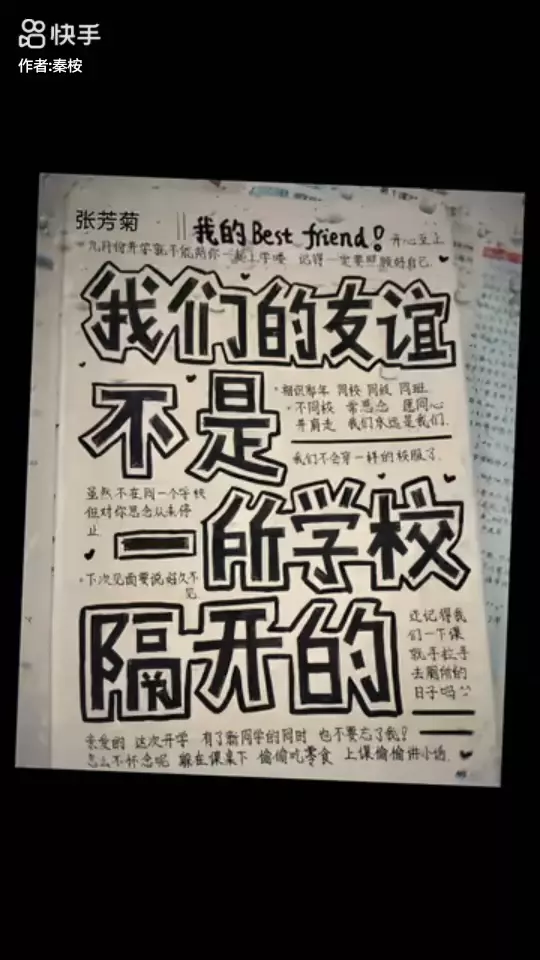 快手
作者:秦桉
张芳菊
我的Best friend!
开心至上
九月份开学就不能陪你一起上学喽 记得一定要照顾好自己
我们的友谊
不是
相识多年 同校 同级 同班
不同校 常思念 愿同心
并肩走 我们永远是我们
我们不会穿一样的校服了
虽然不在同一个学校
但对你思念从未停
止
一所学校
下次见面要说好久不
见
隔开的
还记得我
们一下课
就手拉手
去厕所的
日子吗
亲爱的 这次开学 有了新同学的同时 也不要忘了我?
怎么不怀念呢 躲在课桌下 偷偷吃零食 上课偷偷讲小话